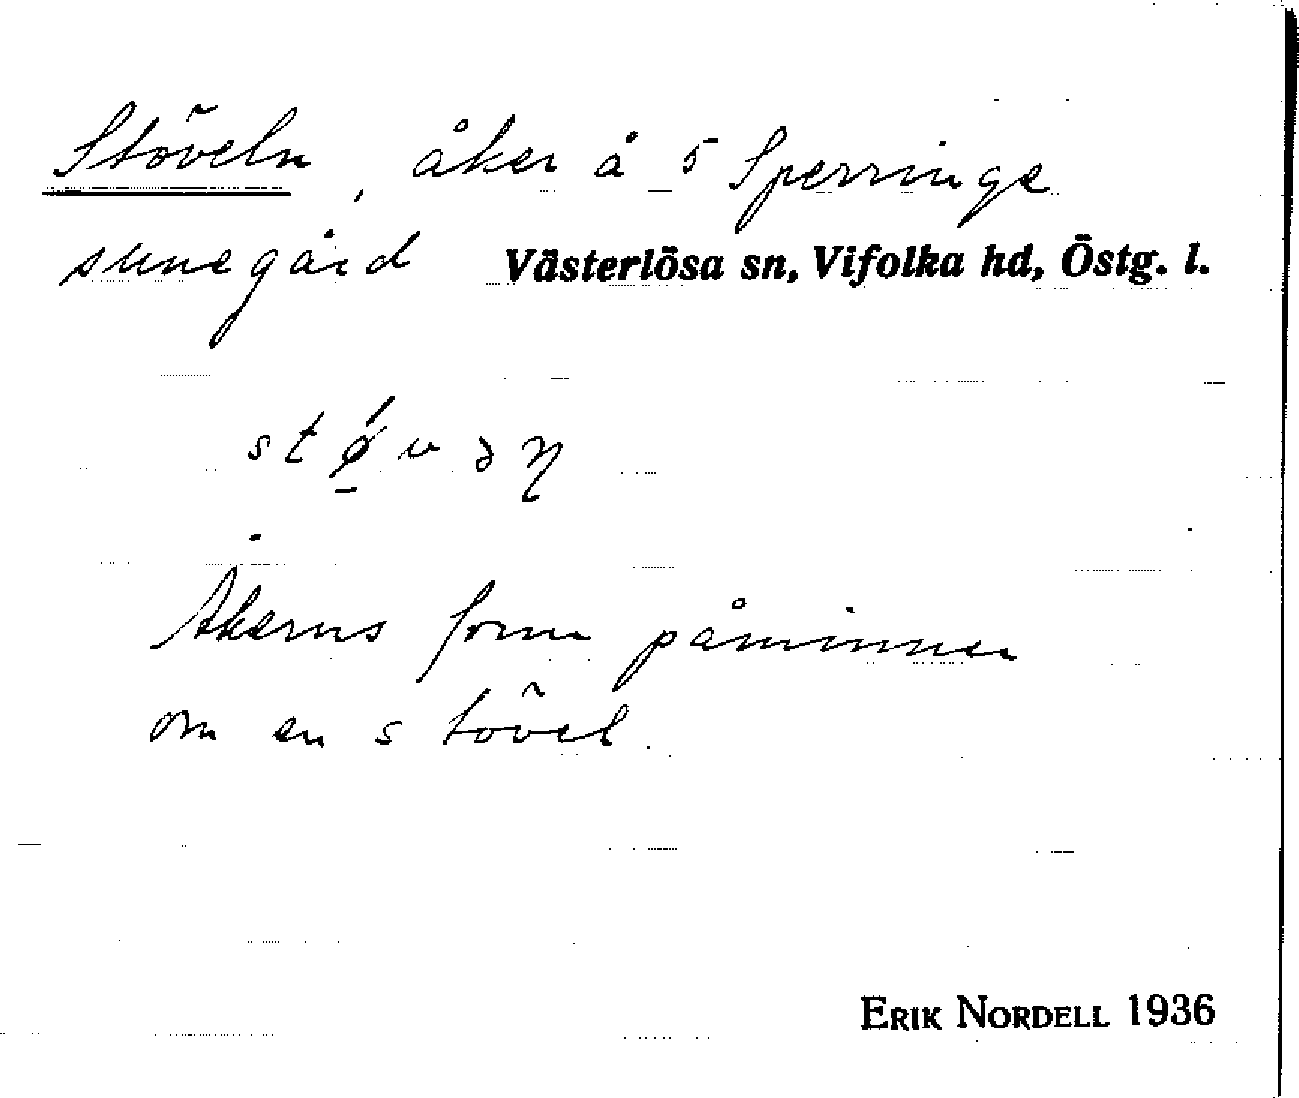 Stöveln, åker å 5 Sperringe
sunegård Västerlösa sn, Vifolka hd, Östg. l.
stǿ̱vəꞃ
Åkerns form påminner
om en stövel.
ERIK NORDELL 1936